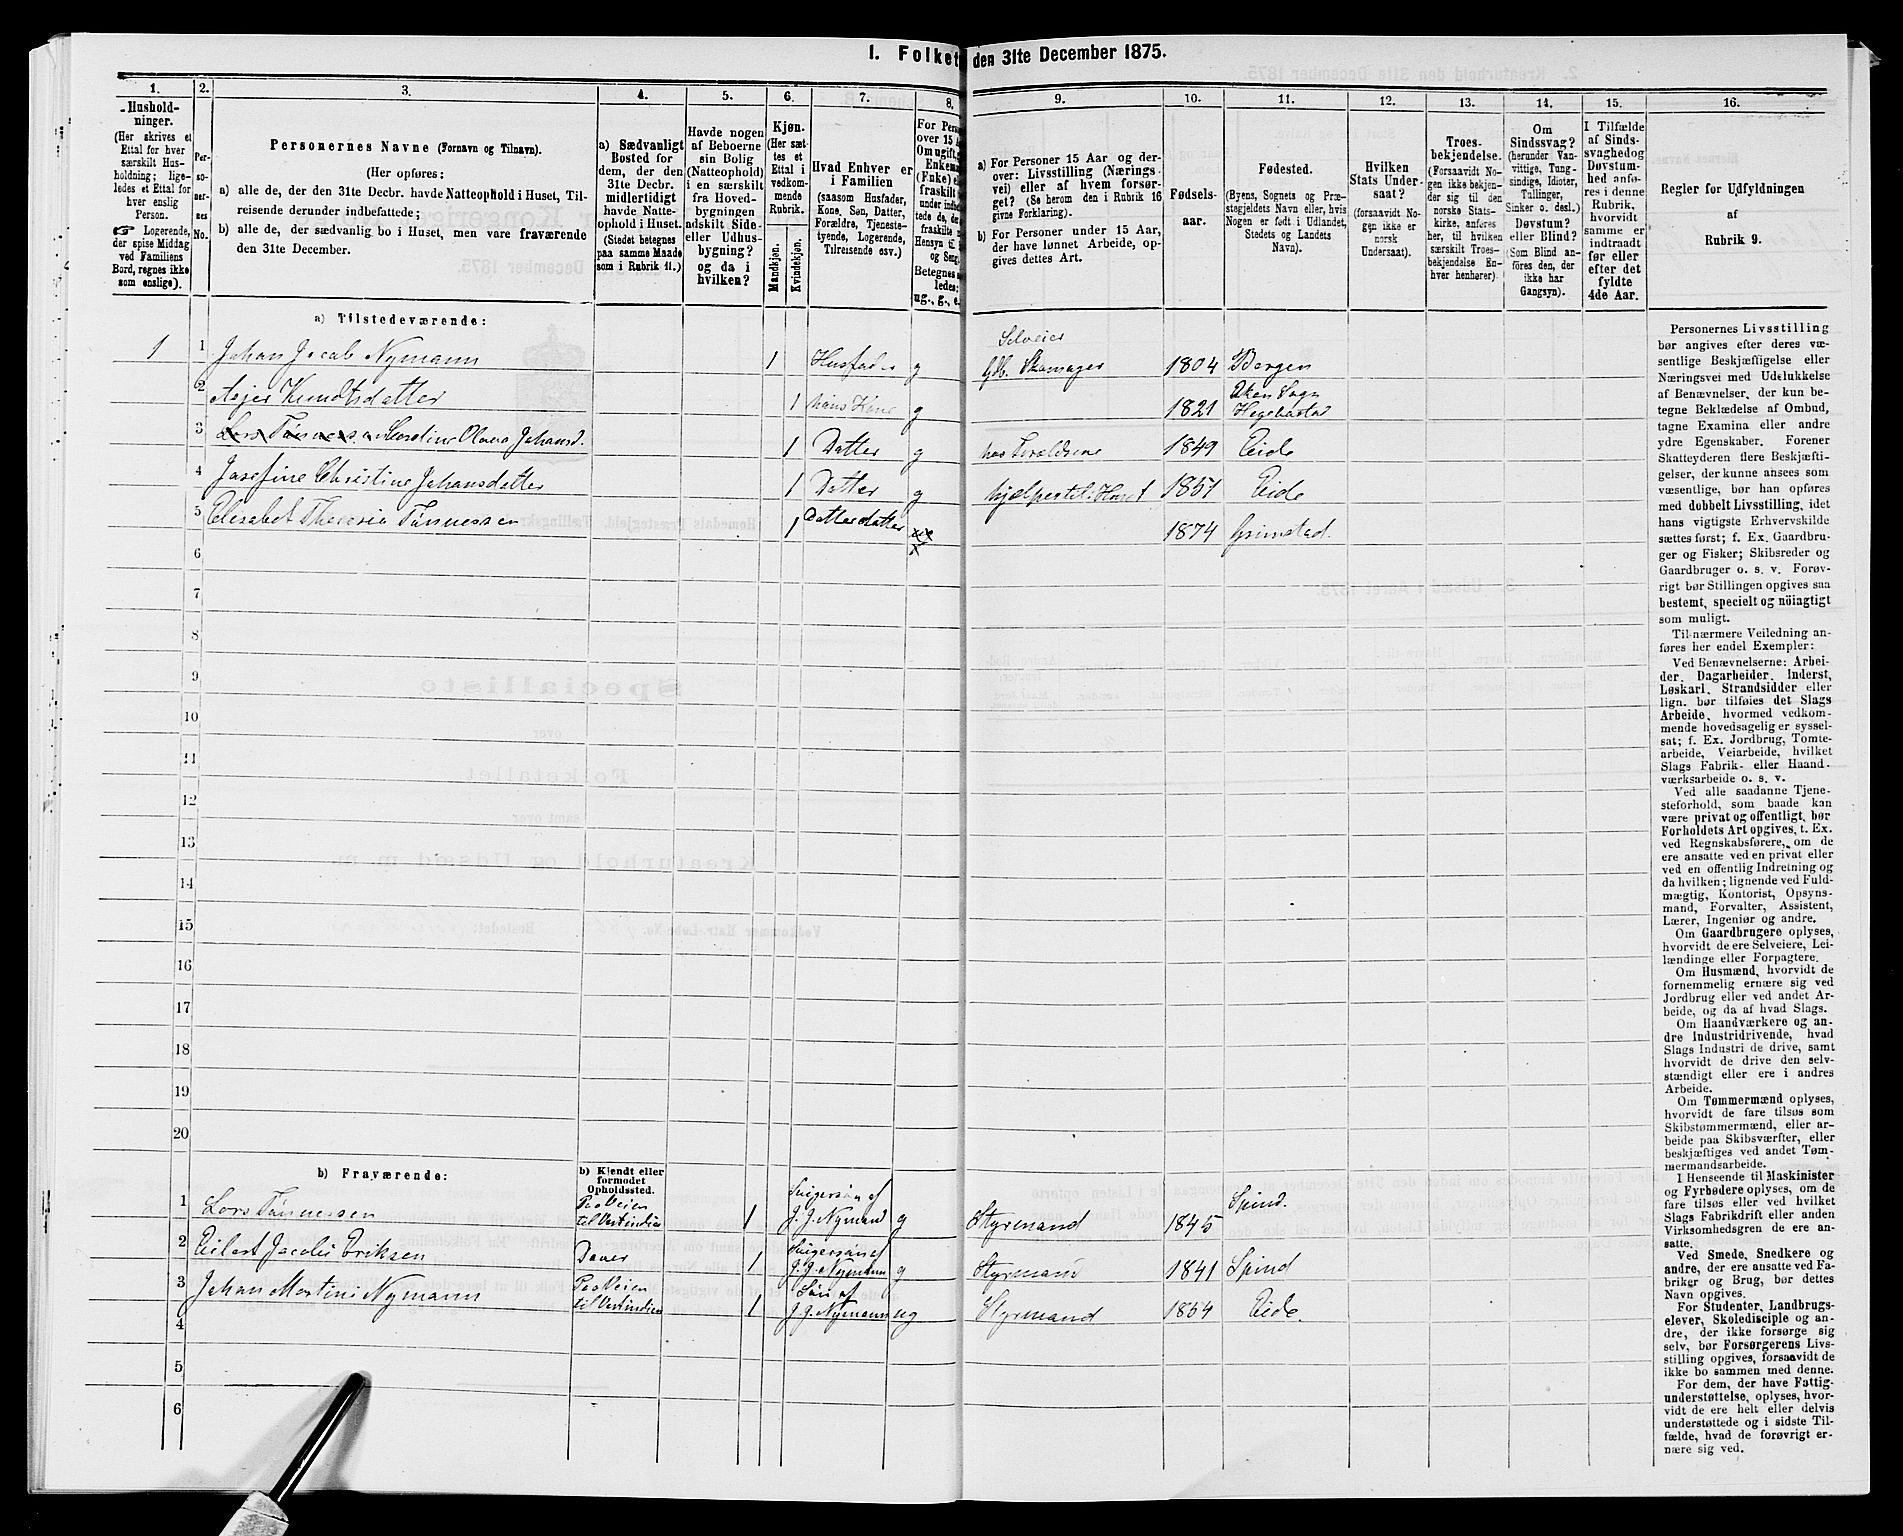 I. Folket den 31te December 1875.
1. 2. 3. 4. 5. 6. 7. 8. 9. 10. 11. 12. 13. 14. 15. 16.
Hushold-
ninger.
(Her skrives et
Ettal for hver
særskilt Hus-
holdning; lige-
ledes et Ettal for
hver enslig
Person.
☛ Logerende,
der spise Middag
ved Familiens
Bord, regnes ikke
som enslige).
Per-
so-
ner-
nes
No.
Personernes Navne (Fornavn og Tilnavn).
(Her opføres:
a) alle de, der den 31te Decbr. havde Natteophold i Huset, Til-
reisende derunder indbefattede;
b) alle de, der sædvanlig bo i Huset, men vare fraværende
den 31te December.
a) Sædvanligt
Bosted for
dem, der den
31te Decbr.
midlertidigt
havde Natte-
ophold i Huset.
(Stedet betegnes
paa samme Maade
som i Rubrik 11.)
Havde nogen
af Beboerne
sin Bolig
(Natteophold)
i en særskilt
fra Hoved-
bygningen
adskilt Side-
eller Udhus-
bygning?
og da i
hvilken?
Kjøn.
(Her sæt-
tes et
Ettal i
vedkom-
mende
Rubrik.
Mandkjøn.
Kvindekjøn.
Hvad Enhver er
i Familien
(saasom Husfader,
Kone, Søn, Datter,
Forældre, Tjeneste-
tyende, Logerende,
Tilreisende osv.)
For Pers
over 15 A
Om ugift, g
Enkema
(Enke) e
fraskilt
under indb
tede de, de
fraskilte
Hensyn til
og Seng.
Betegnes
ledes:
ug., g., e.
a) For Personer 15 Aar og der-
over: Livsstilling (Nærings-
vei) eller af hvem forsør-
get? (Se herom den i Rubrik 16
givne Forklaring).
b) For Personer under 15 Aar,
der have lønnet Arbeide, op-
gives dettes Art.
Fødsels-
aar.
Fødested.
(Byens, Sognets og Præ-
stegjeldets Navn eller, hvis
Nogen er født i Udlandet,
Stedets og Landets
Navn).
Hvilken
Stats Under-
saat?
(forsaavidt No-
gen ikke er
norsk
Undersaat).
Troes-
bekjendelse.
(Forsaavidt No-
gen ikke bekjen-
der sig til den
norske Stats-
kirke, anføres
her, til hvilken
særskilt Troes-
bekjendelse En-
hver henhører).
Om
Sindssvag?
(herunder Van-
vittige, Tung-
sindige, Idioter,
Tullinger,
Sinker o. desl.)
Døvstum?
eller Blind?
(Som Blind an-
føres den, der
ikke har
Gangsyn).
I Tilfælde
af Sinds-
svaghed og
Døvstum-
hed anfø-
res i denne
Rubrik,
hvorvidt
samme er
indtraadt
før eller
efter det
fyldte
4de Aar.
Regler for Udfyldningen
af
Rubrik 9.
a) Tilstedeværende:
Selveier
1 1 Johan Jacob Nymann 1 Husfader g Gdb. Skomager 1804 Bergen
2 Asjer Knudtsdatter 1 hans Kone g 1821 Eken Sogn
Hegebostad
3 Lars Tønnessen Caroline Olava Johansd. 1 Datter g hos Foreldrene 1849 Eide
4 Josefine Christine Johansdatter 1 Datter g hjælper til i Huset 1851 Eide
5 Elisabet Theresia Tønnessen 1 Datterdatter 1874 Grimstad.
6
7
8
9
10
11
12
13
14
15
16
17
18
19
20
b) Fraværende:
b) Kjendt eller
formodet
Opholdssted.
1 Lars Tønnessen Paa Veien
til Vestindien 1 Svigersøn af
J. J. Nymand g Styrmand 1845 Spind.
2 Eilert Jacobi Eriksen Dover 1 Svigersøn af
J. J. Nymann g Styrmand 1841 Spind
3 Johan Martini Nymann Paa Veien
til Vestindien 1 Søn af
J. J. Nymann ug Styrmand 1854 Eide.
4
5
6
Personernes Livsstilling
bør angives efter deres væ-
sentlige Beskjæftigelse eller
Næringsvei med Udelukkelse
af Benævnelser, der kun be-
tegne Beklædelse af Ombud,
tagne Examina eller andre
ydre Egenskaber. Forener
Skatteyderen flere Beskjæfti-
gelser, der kunne ansees som
væsentlige, bør han opføres
med dobbelt Livsstilling, idet
hans vigtigste Erhvervskilde
sættes først; f. Ex. Gaardbru-
ger og Fisker; Skibsreder og
Gaardbruger o. s. v. Forøv-
rigt bør Stillingen opgives saa
bestemt, specielt og nøiagtigt
som muligt.
Til nærmere Veiledning an-
føres her endel Exempler:
Ved Benævnelserne: Arbei-
der, Dagarbeider, Inderst,
Løskarl, Strandsidder eller
lign. bør tilføies det Slags
Arbeide, hvormed vedkom-
mende hovedsagelig er syssel-
sat; f. Ex. Jordbrug, Tomte-
arbeide, Veiarbeide, hvilket
Slags Fabrik- eller Haand-
værksarbeide o. s. v.
Ved alle saadanne Tjene-
steforhold, som baade kan
være privat og offentligt, bør
Forholdets Art opgives, t. Ex.
ved Regnskabsførere, om de
ere ansatte ved en privat eller
ved en offentlig Indretning og
da hvilken; lignende ved Fuld-
mægtig, Kontorist, Opsyns-
mand, Forvalter, Assistent,
Lærer, Ingeniør og andre.
Om Gaardbrugere oplyses,
hvorvidt de ere Selveiere, Lei-
lændinge eller Forpagtere.
Om Husmænd, hvorvidt de
fornemmelig ernære sig ved
Jordbrug eller ved andet Ar-
beide, og da af hvad Slags.
Om Haandværkere og an-
dre Industridrivende, hvad
Slags Industri de drive, samt
hvorvidt de drive den selv-
stændigt eller ere i andres
Arbeide.
Om Tømmermænd oplyses,
hvorvidt de fare tilsøs som
Skibstømmermænd, eller ar-
beide paa Skibsværfter, eller
beskjæftiges ved andet Tøm-
mermandsarbeide.
I Henseende til Maskinister
og Fyrbødere oplyses, om de
fare tilsøs eller ved hvilket
Slags Fabrikdrift eller anden
Virksomhedsgren de ere an-
satte.
Ved Smede, Snedkere og
andre, der ere ansatte ved Fa-
briker og Brug, bør dettes
Navn opgives.
For Studenter, Landbrugs-
elever, Skoledisciple og an-
dre, der ikke forsørge sig
selv, bør Forsørgerens Livs-
stilling opgives, forsaavidt de
ikke bo sammen med denne.
For dem, der have Fattig-
understøttelse, oplyses, hvor-
vidt de ere helt eller delvis
understøttede og i sidste Til-
fælde, hvad de forøvrigt er-
nære sig ved.